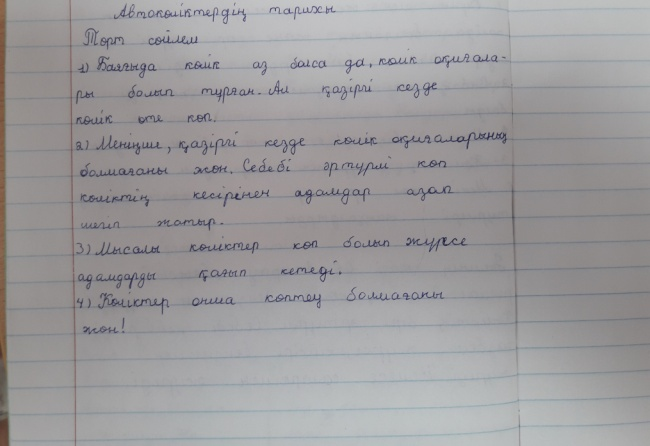 Автокөліктердің тарихы
Төрт сөйлем
1) Баяғыда көлік аз болса да, көлік оқиғала-
ры болып тұрған. Ал қазіргі кезде
көлік өте көп.
2) Меніңше, қазіргі кезде көлік оқиғаларының
болмағаны жөн. Себебі әртүрлі көп
көліктің кесірінен адамдар азап
шегіп жатыр.
3) Мысалы көліктер көп болып жүрсе
адамдарды қағып кетеді.
4) Көліктер онша көптеу болмағаны
жөн!